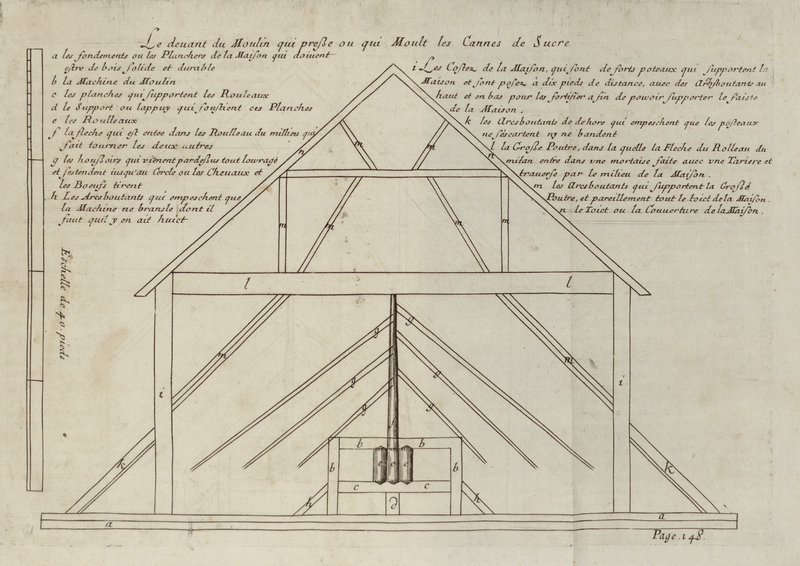 Le deuant du Moulin qui preſſe ou qui Moult les Cannes de Sucre
a les fondements ou les Planchers de la Maiſon qui doiuent
eſtre de bois ſolide et durable
b la Machine du Moulin
c les planches qui ſupportent les Rouleaux
d le Support ou lappuy qui ſouſtient ces Planches
e les Roulleaux
f la fleche qui eſt entée dans les Roulleau du millieu qui
fait tourner les deux autres
g les houſſoirs qui viēnent pardeſſus tout louvragé
et ſestendent iusqu'au Cercle ou les Cheuaux et
les Boeufs tirent
h Les Arcsboutants qui empeschent que
la Machine ne bransle dont il
faut quil y en ait huict
i Les Coſtez de la Maiſon, qui ſont de forts poteaux qui ſupportent la
Maison et ſont poſez à dix pieds de distance, avec des Arcsboutants au
haut et en bas pour les fortifier afin de pouvoir ſupporter le faiste
de la Maison.
k les Arcsboutants de dehors qui empeschent que les poſteaux
ne ſescartent ny ne bandent
l la Groſſe Poutre, dans la quelle la Fleche du Rolleau du
milan entre dans vne mortaise faite auec vne Tariere et
trauerſe par le milieu de la Maiſon.
m les Arcsboutants qui ſupportent la Groſſe
Poutre, et pareillement tout le toict de la Maiſon.
n le Toict ou la Couuerture de la Maiſon.
Eschelle de 40. pieds
n m m n
m m m m
l l
g g
m m
g g
i g g i
b b
k b e e e b k
c c
h d h
a a
Page. 148.